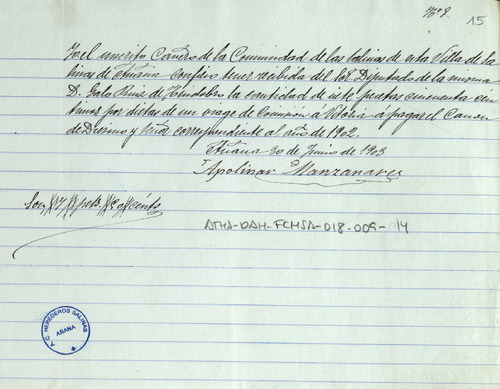 Nº 8.
15
Yo el infrascrito Cartero de la Comunidad de las Salinas de esta Villa de Sa
linas de Añana confieso tener recibida del Sr. Diputado de la misma
D. Galo Ruiz de la cantidad de siete pesetas cincuenta cén
timos por dietas de un viage de Comisión a Vitoria a pagar el Canon
de Diezmo y correspondiente al año de 1902.
Añana 30 de Junio de 1903
Apolinar Manzanares
Son 7 pets. 50 cénts
ATHA-DAH-FCHSA-018-009-14
C. HEREDEROS SALINAS
AÑANA